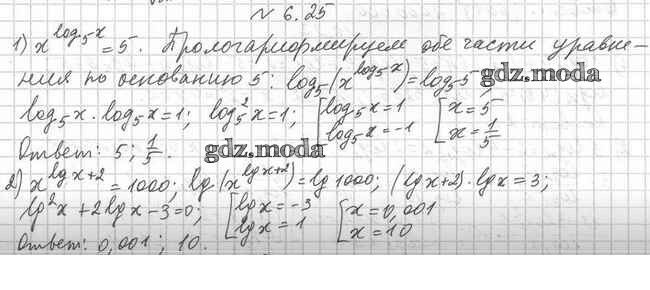 № 6.25
1) x^(log₅x) = 5. Прологарифмируем обе части уравне-
ния по основанию 5: log₅(x^(log₅x)) = log₅5 gdz.moda
log₅x · log₅x = 1; log₅²x = 1; [log₅x = 1 [x = 5
log₅x = -1 x = 1/5
Ответ: 5; 1/5. gdz.moda
2) x^(lgx+2) = 1000; lg(x^(lgx+2)) = lg1000; (lgx+2)·lgx = 3;
lg²x + 2lgx - 3 = 0; [lgx = -3 [x = 0,001
lgx = 1 x = 10
Ответ: 0,001; 10.